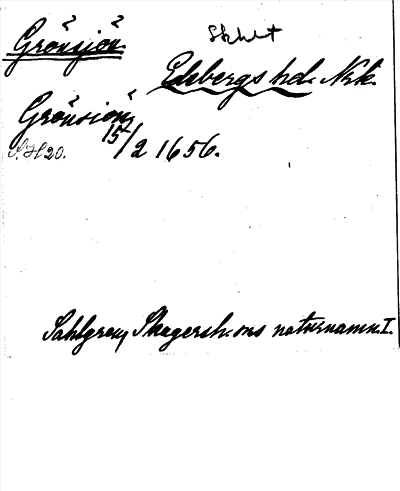 Grönsjön
Skht
Edsbergs hd. Nrk.
Grönsiön,
15/2 1656.
S. H 20.
Sahlgren, Skagersh:ons naturnamn I.